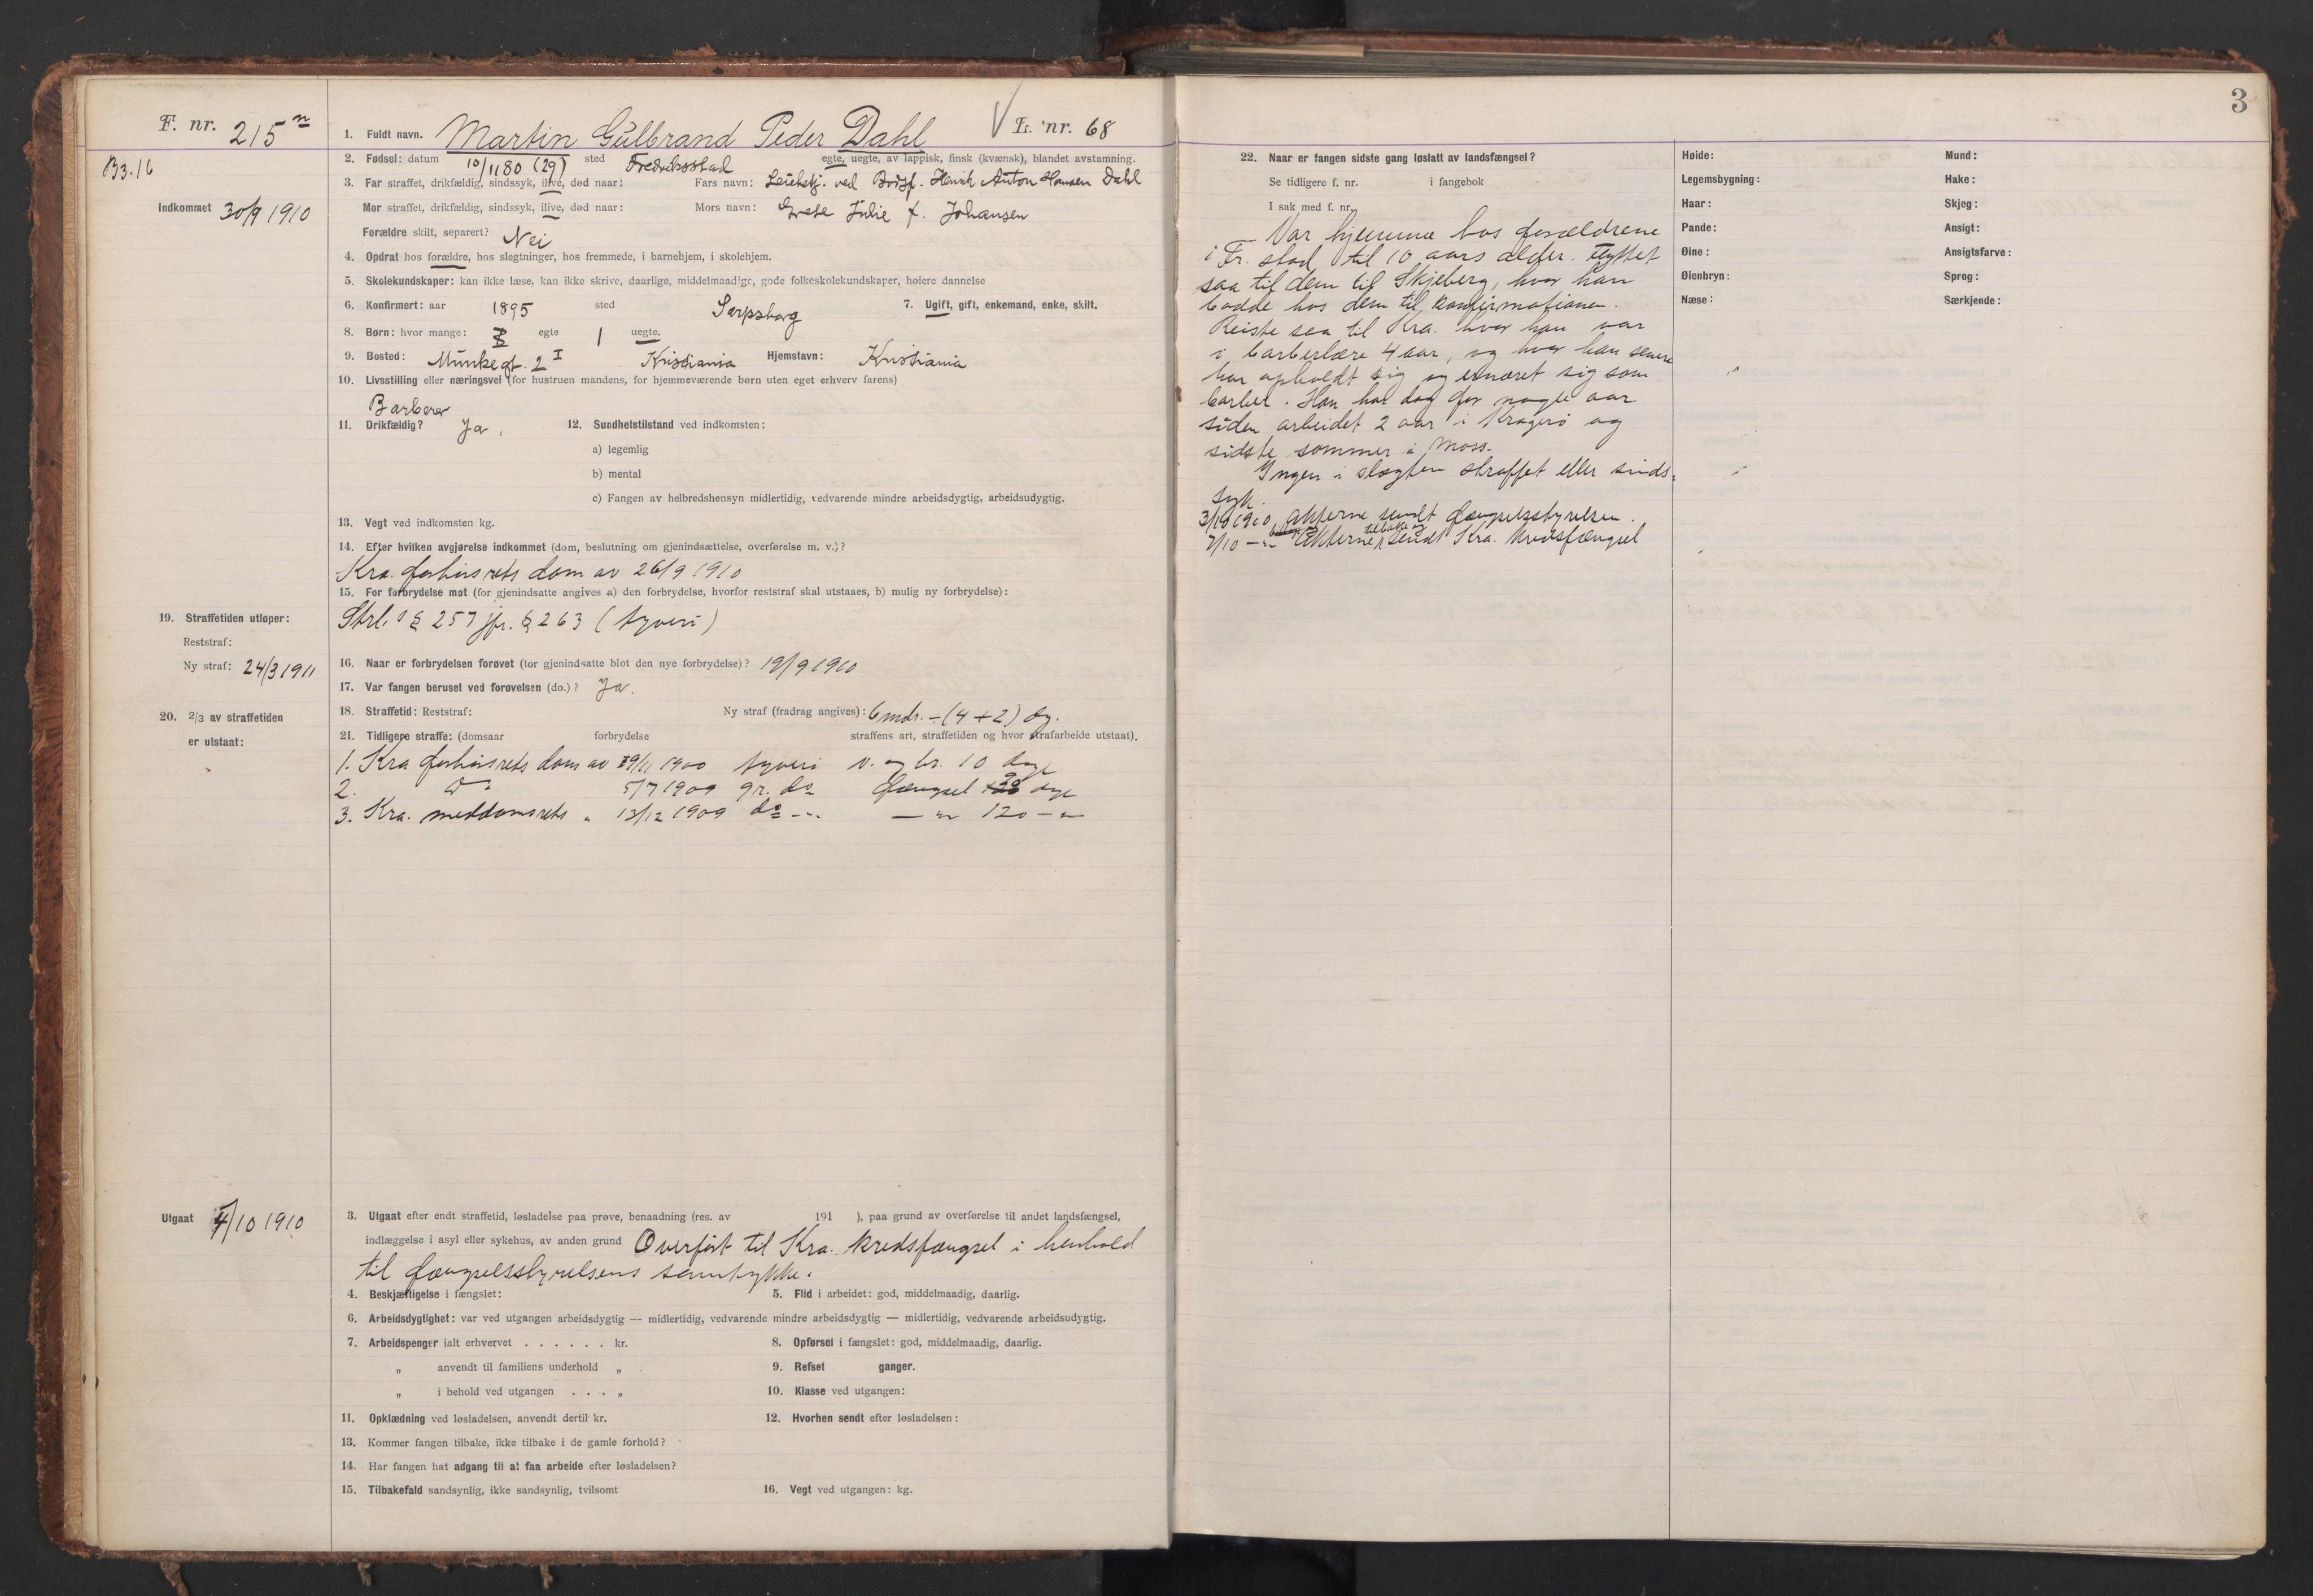 F. nr. 215 n
1. Fuldt navn. Martin Gulbrand Peder Dahl
L. nr. 68
B3.16
2. Fødsel: datum 10/11 80 (29) sted Fredriksstad egte, uegte, av lappisk, finsk (kvænsk), blandet avstamning.
3. Far straffet, drikfældig, sindssyk, ilive, død naar: Fars navn: ved Bodsf. Henrik Anton Hansen Dahl
Indkommet 30/9 1910
Mor straffet, drikfældig, sindssyk, ilive, død naar: Mors navn: Grete Julie f. Johansen
Forældre skilt, separert? Nei
4. Opdrat hos forældre, hos slegtninger, hos fremmede, i barnehjem, i skolehjem.
5. Skolekundskaper: kan ikke læse, kan ikke skrive, daarlige, middelmaadige, gode folkeskolekundskaper, høiere dannelse
6. Konfirmert: aar 1895 sted Sarpsborg 7. Ugift, gift, enkemand, enke, skilt.
8. Børn: hvor mange: egte 1 uegte.
9. Bosted: Munkegt. 2 I Kristiania Hjemstavn: Kristiania
10. Livsstilling eller næringsvei (for hustruen mandens, for hjemmeværende børn uten eget erhverv farens)
Barberer
11. Drikfældig? Ja. 12. Sundhetstilstand ved indkomsten:
a) legemlig
b) mental
c) Fangen av helbredshensyn midlertidig, vedvarende mindre arbeidsdygtig, arbeidsudygtig.
13. Vegt ved indkomsten kg.
14. Efter hvilken avgjørelse indkommet (dom, beslutning om gjenindsættelse, overførelse m. v.)?
Kra. forhørsrets dom av 26/9 1910
15. For forbrydelse mot (for gjenindsatte angives a) den forbrydelse, hvorfor reststraf skal utstaaes, b) mulig ny forbrydelse):
Strl. § 257 jfr. § 263 (tyveri)
19. Straffetiden utløper:
Reststraf:
Ny straf: 24/3 1911
16. Naar er forbrydelsen forøvet (for gjenindsatte blot den nye forbrydelse)? 19/9 1910
17. Var fangen beruset ved forøvelsen (do.)? Ja.
18. Straffetid: Reststraf: Ny straf (fradrag angives): 6 mdr. ÷ (4 + 2) dg.
20. 2/3 av straffetiden
er utstaat:
21. Tidligere straffe: (domsaar forbrydelse straffens art, straffetiden og hvor strafarbeide utstaat).
1. Kra forhørsrets dom av 29/11 1900 tyveri v. og br. 10 dage
2. Do 5/7 1909 gr. do fængsel 30 dge
3. Kra. meddomsrets " 13/12 1909 do -"- -"- 120 -"-
Utgaat 4/10 1910
3. Utgaat efter endt straffetid, løsladelse paa prøve, benaadning (res. av 191 ), paa grund av overførelse til andet landsfængsel,
indlæggelse i asyl eller sykehus, av anden grund Overført til Kra. kredsfængsel i henhold
til fængselsstyrelsens samtykke.
4. Beskjæftigelse i fængslet: 5. Flid i arbeidet: god, middelmaadig, daarlig.
6. Arbeidsdyglighet: var ved utgangen arbeidsdygtig — midlertidig, vedvarende mindre arbeidsdygtig — midlertidig, vedvarende arbeidsudygtig.
7. Arbeidspenger ialt erhvervet . . . . . . kr. 8. Opførsel i fængslet: god, middelmaadig, daarlig.
„ anvendt til familiens underhold „ 9. Refset ganger.
„ i behold ved utgangen . . . „ 10. Klasse ved utgangen:
11. Opklædning ved løsladelsen, anvendt dertil kr. 12. Hvorhen sendt efter løsladelsen:
13. Kommer fangen tilbake, ikke tilbake i de gamle forhold?
14. Har fangen hat adgang til at faa arbeide efter løsladelsen?
15. Tilbakefald sandsynlig, ikke sandsynlig, tvilsomt 16. Vegt ved utgangen: kg.
3
22. Naar er fangen sidste gang løslatt av landsfængsel?
Se tidligere f. nr. i fangebok
I sak med f. nr.
Var hjemme hos forældrene
i Fr.stad til 10 aars alder. Flyttet
saa til dem til Skjeberg, hvor han
bodde hos dem til konfirmationen.
Reiste saa til Kra. hvor han var
i barberlære 4 aar, og hvor han senere
har opholdt sig og ernæret sig som
barber. Han har dog for nogle aar
siden arbeidet 2 aar i Kragerø og
sidste sommer i Moss.
Ingen i slægten straffet eller sinds-
syk.
3/10 1910 akterne sendt fængselsstyrelsen.
7/10 -"- Akterne tilbake og sendt Kra. kredsfængsel
Høide: Mund:
Legemsbygning: Hake:
Haar: Skjeg:
Pande: Ansigt:
Øine: Ansigtsfarve:
Øienbryn: Sprog:
Næse: Særkjende: